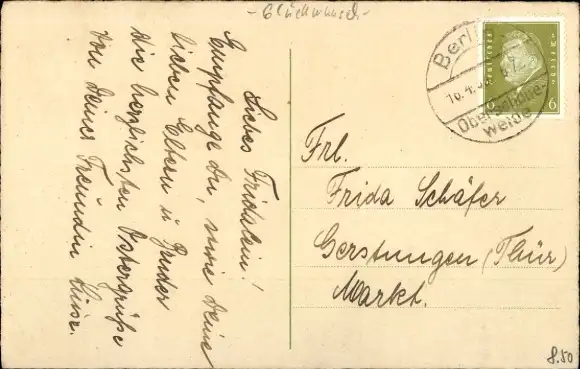 - Glückwunsch -
Liebes Fridelein!
Empfange Du, sowie Deine
lieben Eltern u Bruder
die herzlichsten Ostergrüße
von Deiner Freundin
Frl.
Frida Schäfer
Gerstungen (Thür)
Markt.
Berlin
16.4.
Oberschöne-
weide
6 6
8.50